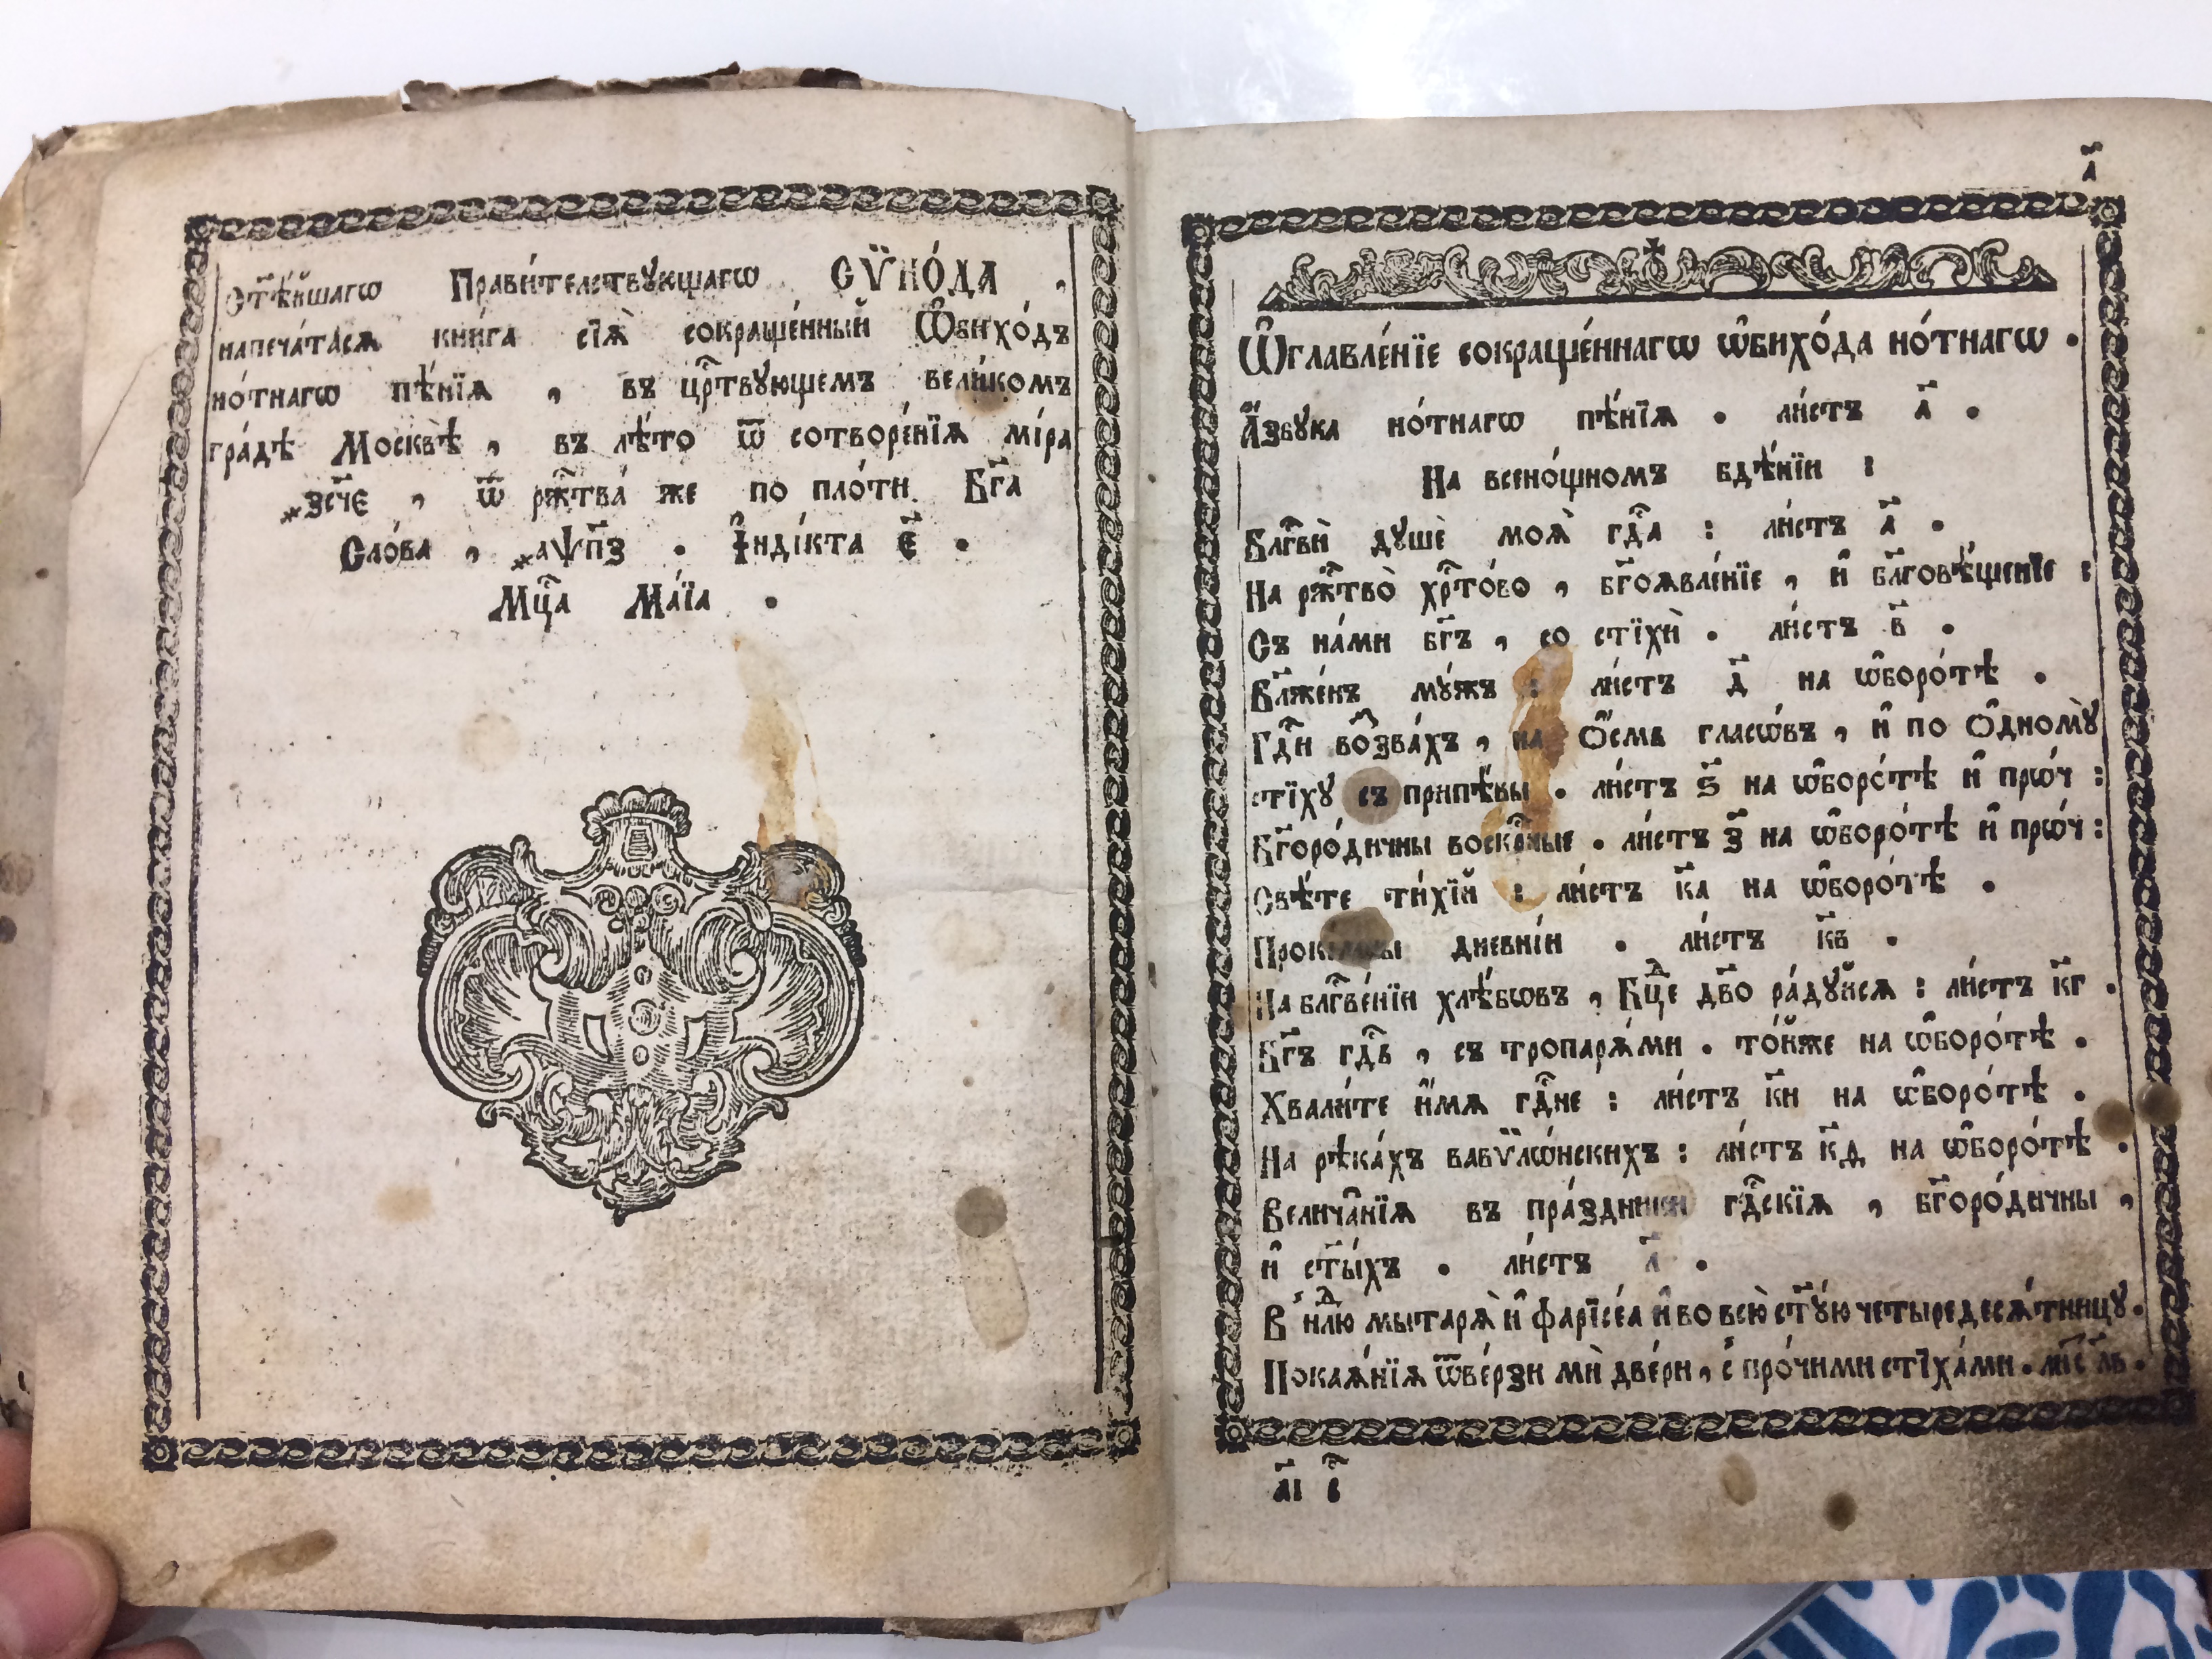 ст҃ѣ́йшагѡ Прави́телствꙋющагѡ СѶНО́ДА ,
напеча́тасѧ кни́га сїѧ̀ сокраще́нный Ѡ҆бихо́дъ
но́тнагѡ пѣ́нїѧ , въ црⷭ҇твꙋющемъ вели́комъ
гра́дѣ Москвѣ̀ , въ лѣ́то ѿ сотворе́нїѧ мі́ра
҂зс҃че , ѿ рж҃тва́ же по пло́ти Бг҃а
Сло́ва , ҂аѱп҃з . І҆нді́кта е҃ .
Мцⷭ҇а Ма́їа .
а҃
Ѡ҆главле́нїе сокраще́ннагѡ ѡ҆бихо́да но́тнагѡ .
А҆́збꙋка но́тнагѡ пѣ́нїѧ . ли́стъ а҃ .
На всено́щномъ бдѣ́нїи :
Блгⷭ҇вѝ дꙋшѐ моѧ̀ гдⷭ҇а : ли́стъ а҃ .
На ржⷭ҇тво̀ хрⷭ҇то́во , бг҃оѧвле́нїе , и҆ бл҃говѣ́щенїе :
Съ на́ми бг҃ъ , со стїхѝ . ли́стъ в҃ .
Бл҃же́нъ мꙋ́жъ : ли́стъ д҃ на ѡ҆боро́тѣ .
Гдⷭ҇и возва́хъ , на Ѻ҆́смь гласѡ́въ , и҆ по Ѻ҆дномꙋ̀
стїхꙋ̀ съ припѣ́вы . ли́стъ ѕ҃ на ѡ҆боро́тѣ и҆ прѡ́ч :
Бг҃оро́дичны воскрⷭ҇ные . ли́стъ з҃ на ѡ҆боро́тѣ и҆ прѡ́ч :
Свѣ́те ти́хїй : ли́стъ к҃а на ѡ҆боро́тѣ .
дневні́и . ли́стъ к҃в .
На блгⷭ҇ве́нїи хлѣ́бѡвъ , Бц҃де дв҃о ра́дꙋйсѧ : ли́стъ к҃г .
Бг҃ъ гдⷭ҇ь , съ тропарѧ́ми . то́йже на ѡ҆боро́тѣ .
Хвали́те и҆́мѧ гдⷭ҇не : ли́стъ к҃и на ѡ҆боро́тѣ .
На рѣка́хъ вавѷлѡ́нскихъ : ли́стъ к҃д на ѡ҆боро́тѣ .
Велича̑нїѧ въ пра́здники гдⷭ҇скїѧ , бг҃оро́дичны ,
и҆ ст҃ы́хъ . ли́стъ л҃ .
В нⷣлю мытарѧ̀ и҆ фарїсе́а и҆ во всю̀ ст҃ꙋ́ю четыредесѧ́тницꙋ .
Покаѧ́нїѧ ѿве́рзи мѝ две́ри , с про́чими стїха́ми . лиⷭ҇ л҃в .
а҃і с҃